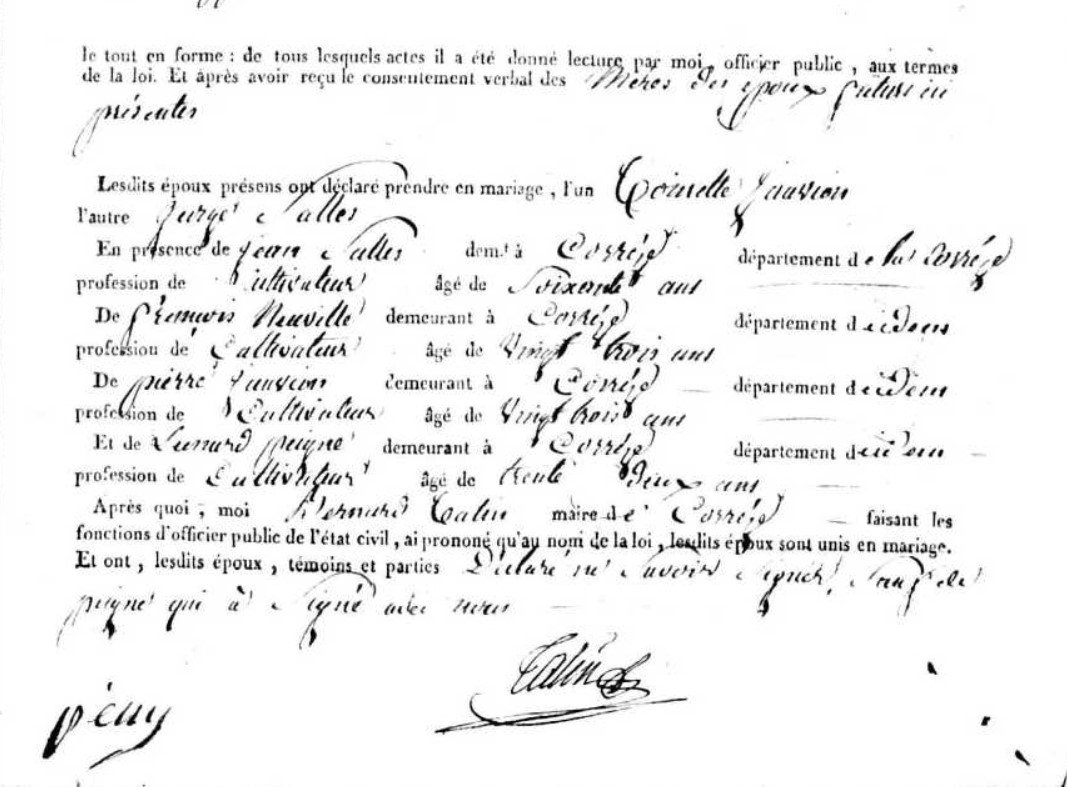 le tout en forme : de tous lesquels actes il a été donné lecture par moi, officier public, aux termes
de la loi. Et après avoir reçu le consentement verbal des Mères des époux futurs ici
présentes
Lesdits époux présens ont déclaré prendre en mariage, l'un Toinette Jauvion
l'autre Salles
En présence de Jean Salles dem.t à Corrèze département de la Corrèze
profession de Cultivateur âgé de Soixante ans
De Neuville demeurant à Corrèze département d idem
profession de Cultivateur âgé de Vingt trois ans
De pierre Jauvion demeurant à Corrèze département d idem
profession de Cultivateur âgé de Vingt trois ans
Et de Lenard peigne demeurant à Corrèze département d idem
profession de Cultivateur âgé de trente deux ans
Après quoi, moi Bernard Talin maire de Corrèze faisant les
fonctions d'officier public de l'état civil, ai prononé qu'au nom de la loi, lesdits époux sont unis en mariage.
Et ont, lesdits époux, témoins et parties Déclaré ne Savoir Signer, Sauf le
peigne qui à Signé avec nous
Talin